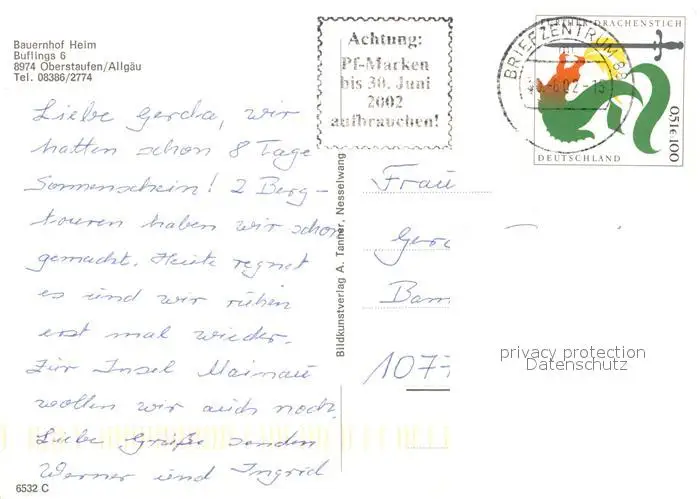 Bauernhof Heim
Buflings 6
8974 Oberstaufen/Allgäu
Tel. 08386/2774
Achtung:
Pf-Marken
bis 30. Juni
2002
aufbrauchen!
BRIEFZENTRUM 88
FURTHER DRACHENSTICH
0,51€ 100
DEUTSCHLAND
Liebe Gerda, wir
hatten schon 8 Tage
Sonnenschein! 2 Berg-
touren haben wir schon
gemacht. Heute regnet
es und wir ruhen
erst mal wieder.
Zur Insel Mainau
wollen wir auch noch.
Liebe Grüße senden
Werner und Ingrid
Bildkunstverlag A. Tanner, Nesselwang
Frau
Ger
Bam
1077
privacy protection
Datenschutz
6532 C